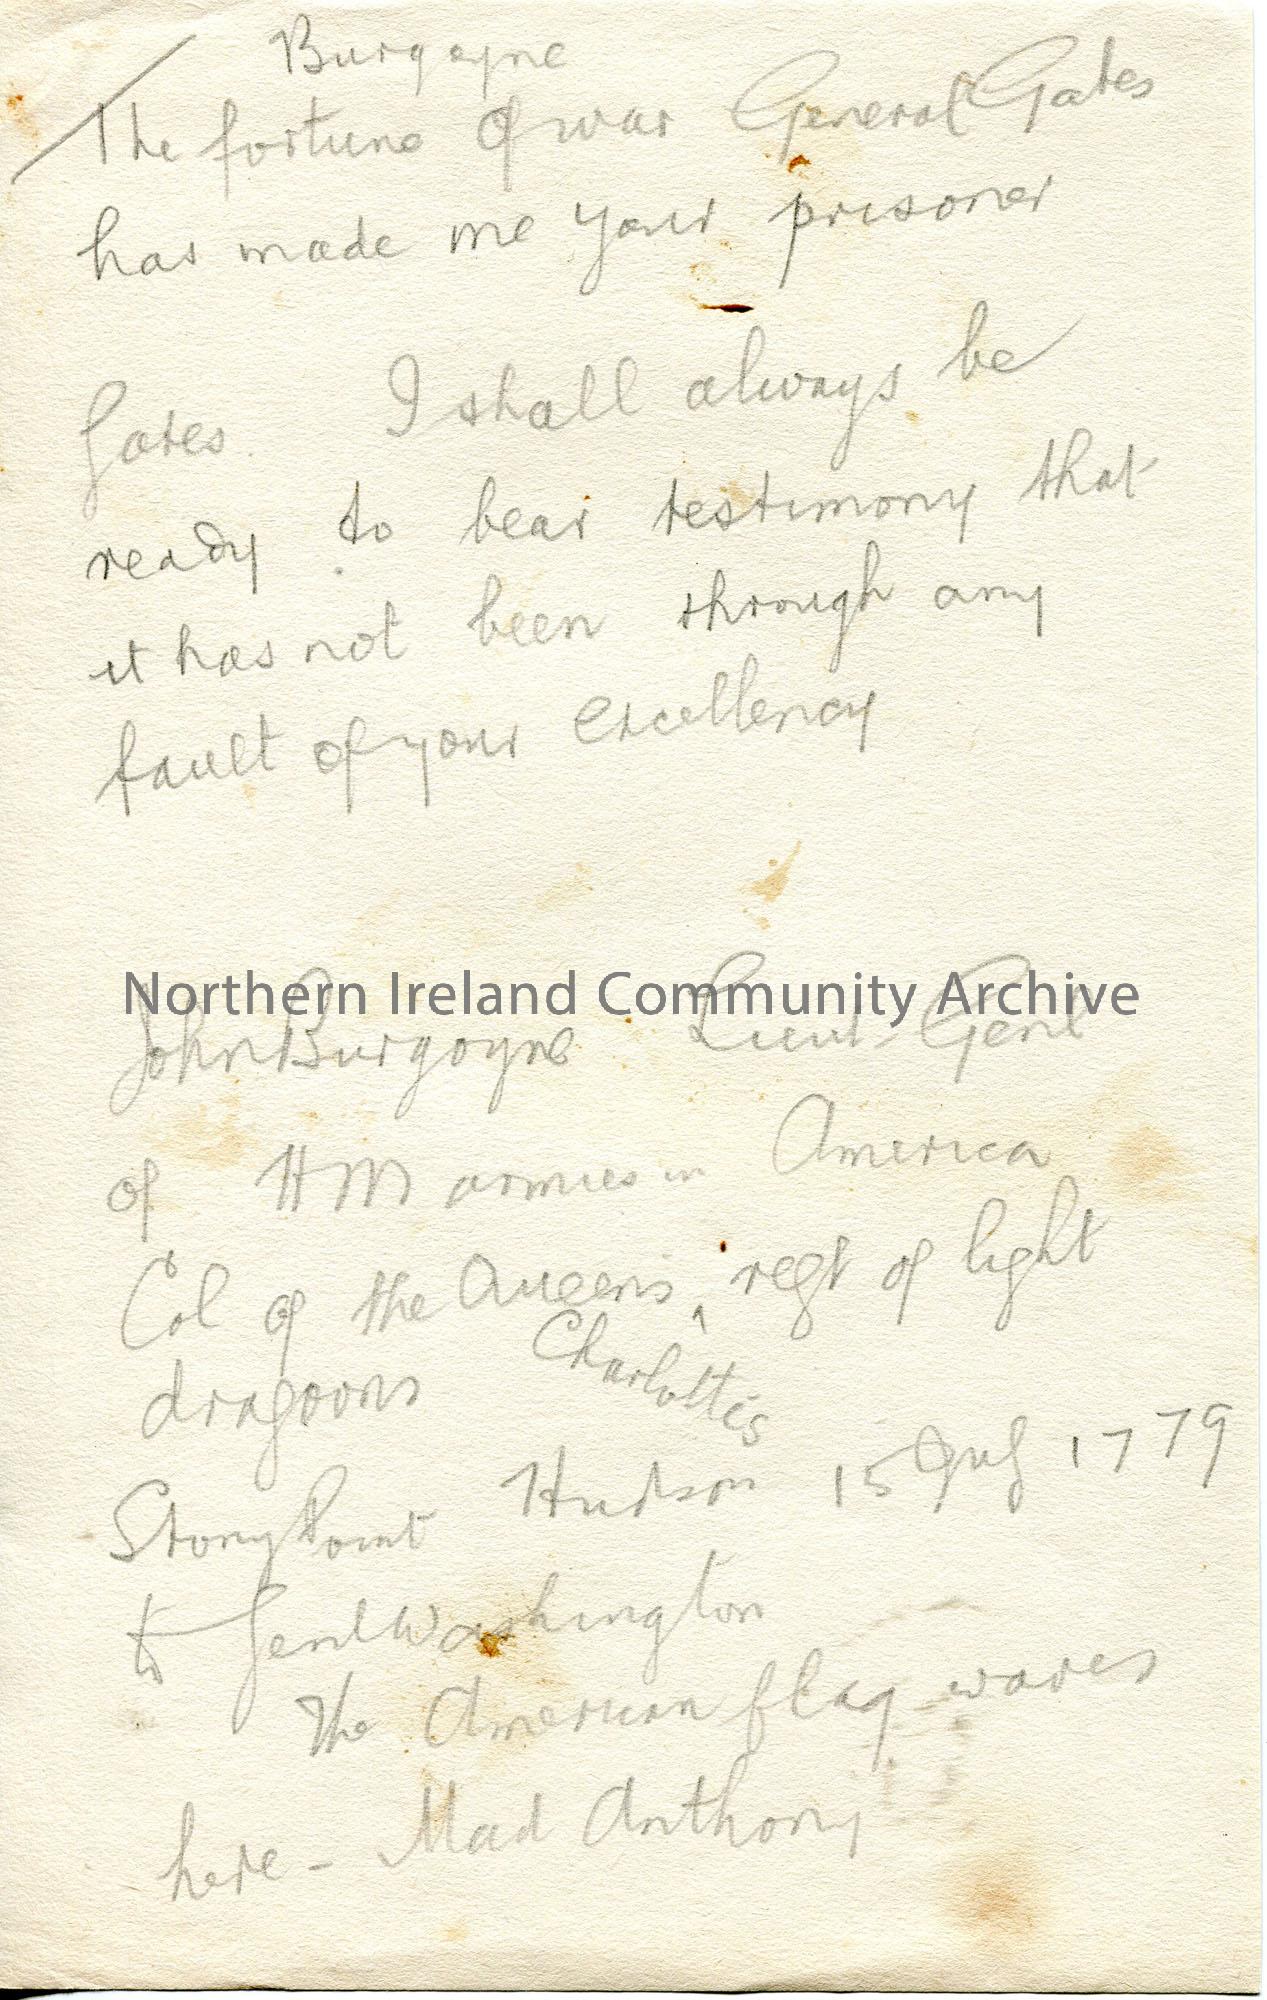 Burgoyne
The fortune of war General Gates
has made me your prisoner
Gates I shall always be
ready to bear testimony that
it has not been through any
fault of your excellency
Northern Ireland Community Archive
John Burgoyne Lieut-Genl
of HM armies in America
Col of the Queens ^ regt of light
Charlottes
dragoons
Stony Point Hudson 15 July 1779
to Genl Washington
The American flag waves
here - Mad Anthony